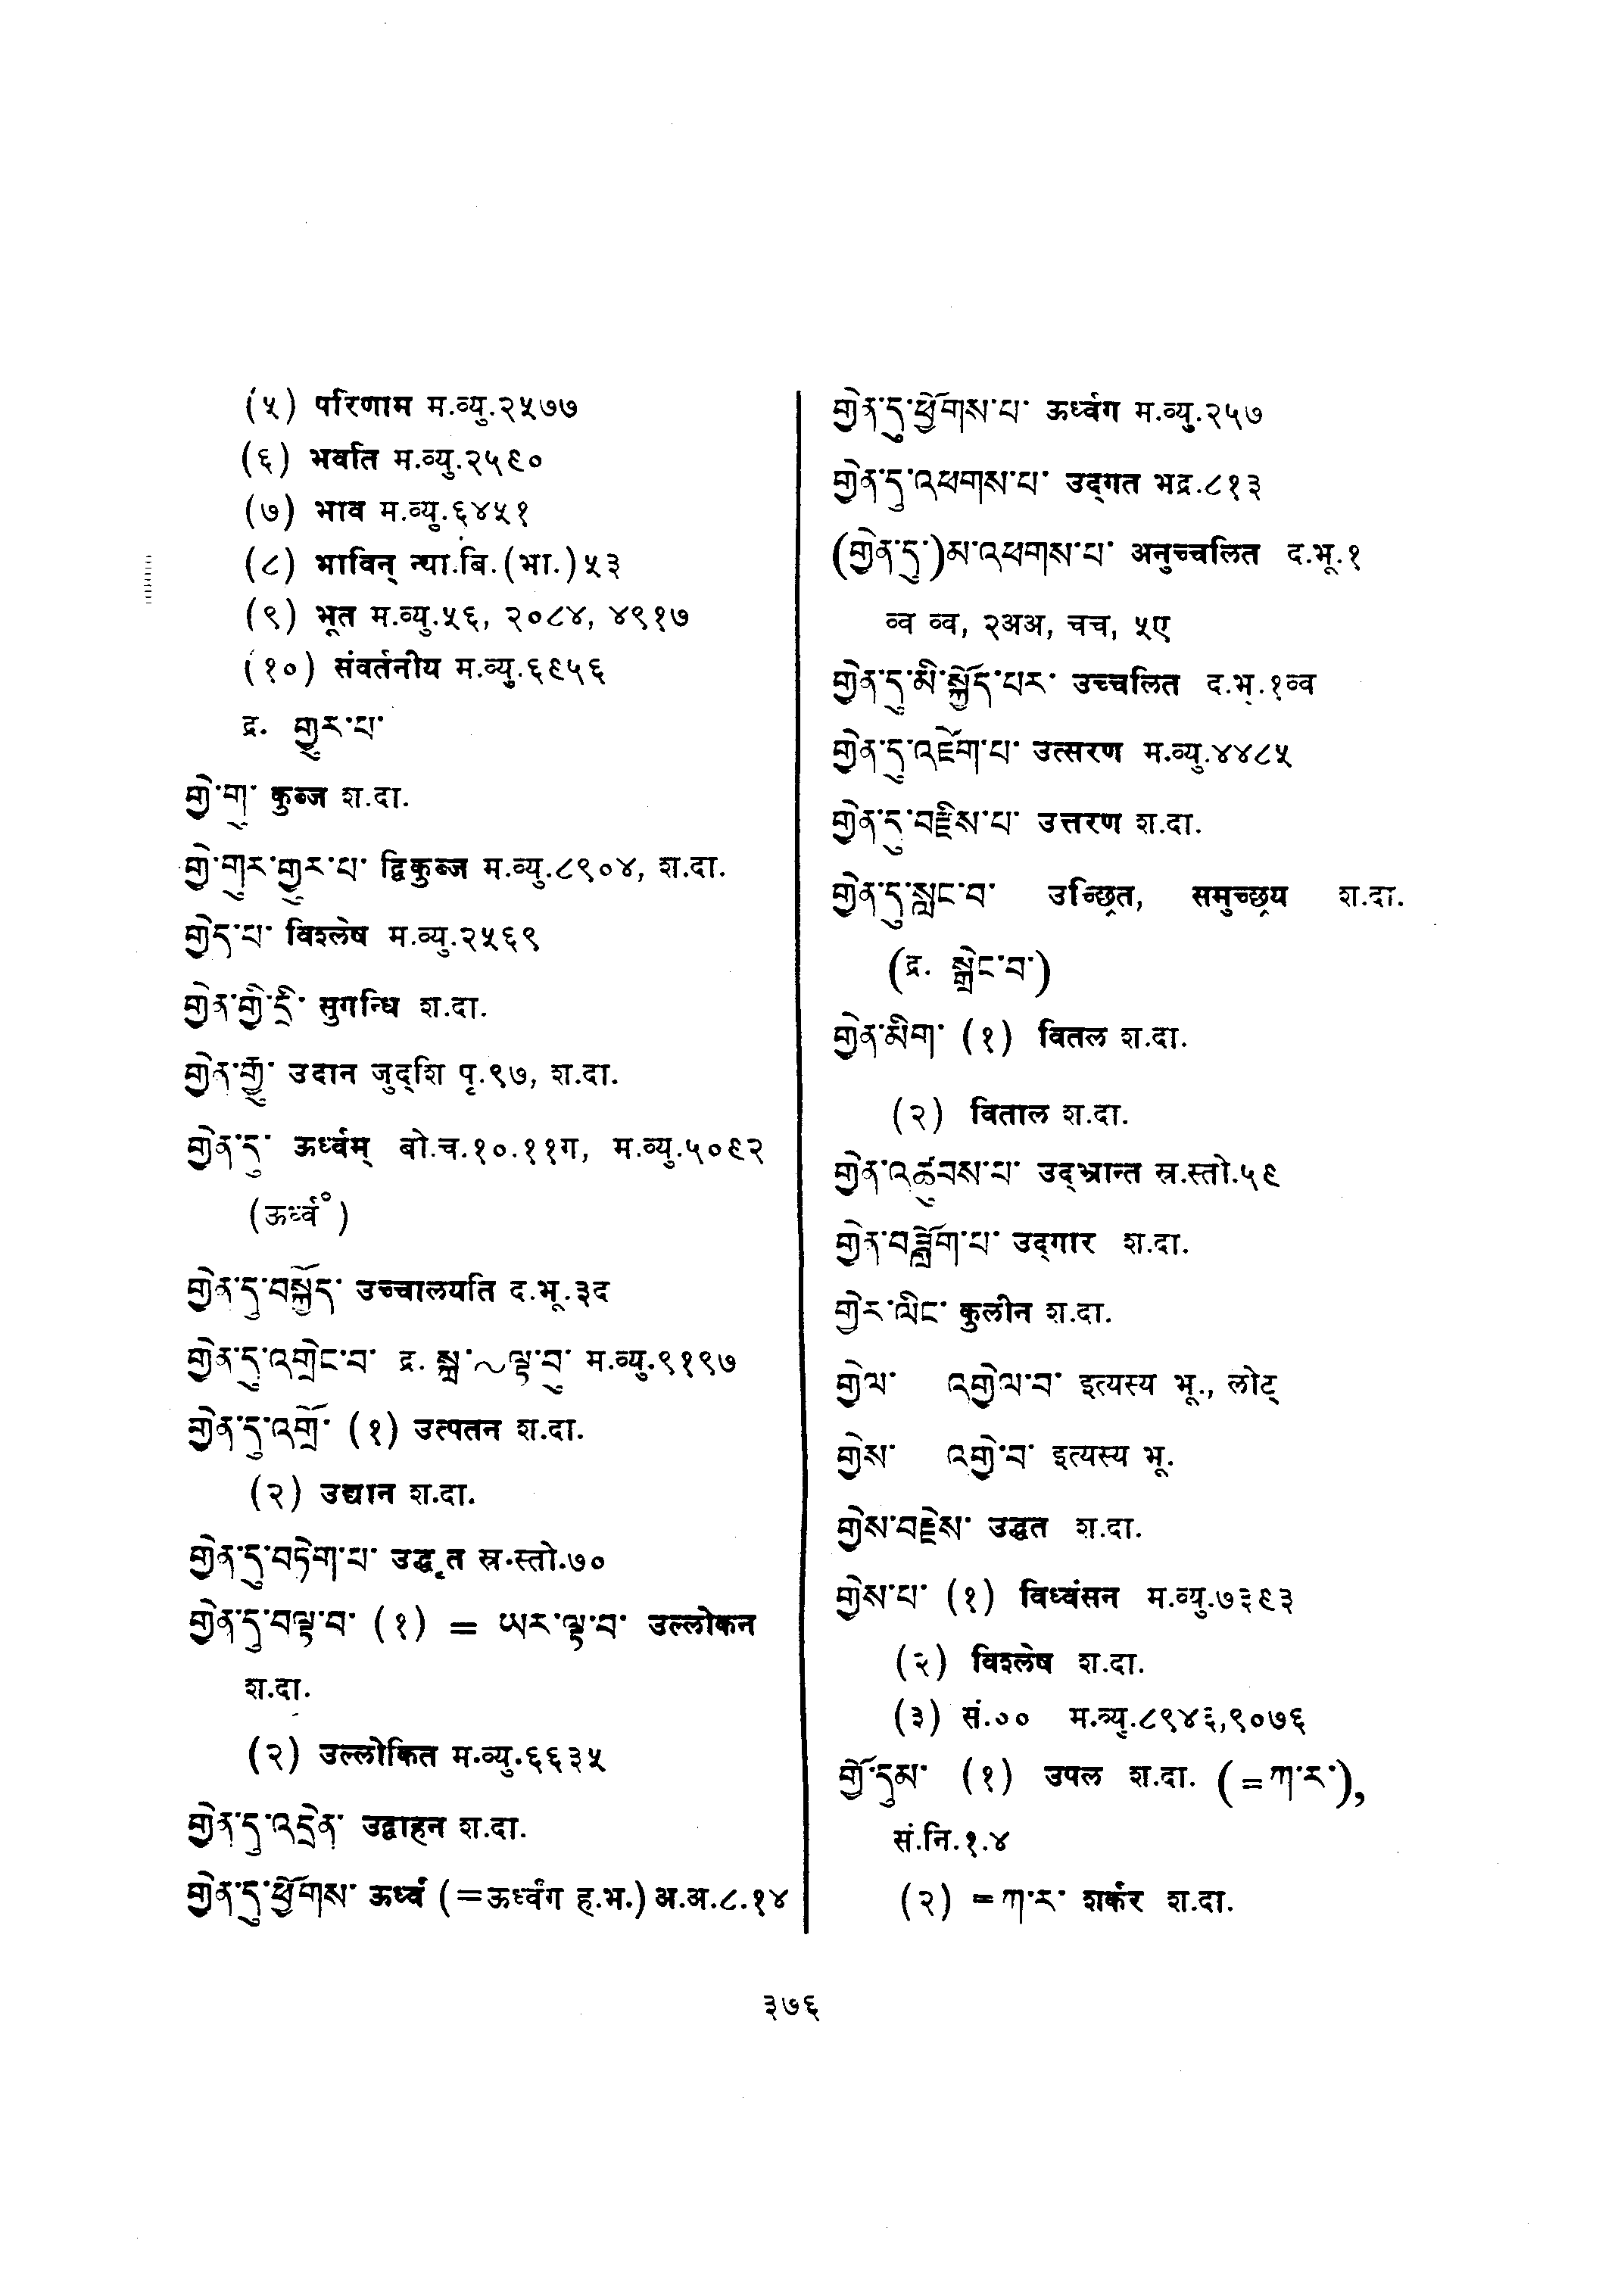 (५) परिणाम म.व्यु.२५७७
(६) भवति म.व्यु.२५९०
(७) भाव म.व्यु.६४५१
(८) भाविन् न्या.बि.(भा.)५३
(९) भूत म.व्यु.५६, २०८४, ४९१७
(१०) संवर्तनीय म.व्यु.६९५६
द्र. གྱུར་པ་
གྱེ་གུ་ कुब्ज श.दा.
གྱེ་གུར་གྱུར་པ་ द्विकुब्ज म.व्यु.८९०४, श.दा.
གྱེད་པ་ विश्लेष म.व्यु.२५६९
གྱེན་གྱི་དྲི་ सुगन्धि श.दा.
གྱེན་རྒྱུ་ उदान जुद्शि पृ.९७, श.दा.
གྱེན་དུ་ ऊर्ध्वम् बो.च.१०.११ग, म.व्यु.५०९२
(ऊर्ध्व°)
གྱེན་དུ་བསྐྱོད་ उच्चालयति द.भू.३द
གྱེན་དུ་འགྲེང་བ་ द्र. སྐྲ་~ལྟ་བུ་ म.व्यु.९१९७
གྱེན་དུ་འགྲོ་ (१) उत्पतन श.दा.
(२) उद्यान श.दा.
གྱེན་དུ་བཏེག་པ་ उद्धृत स्र.स्तो.७०
གྱེན་དུ་བལྟ་བ་ (१) = ཡར་ལྟ་བ་ उल्लोकन
श.दा.
(२) उल्लोकित म.व्यु.६६३५
གྱེན་དུ་འདྲེན་ उद्वाहन श.दा.
གྱེན་དུ་ཕྱོགས་ ऊर्ध्वं (=ऊर्ध्वंग ह.भ.) अ.अ.८.१४
གྱེན་དུ་ཕྱོགས་པ་ ऊर्ध्वंग म.व्यु.२५७
གྱེན་དུ་འཕགས་པ་ उद्गत भद्र.८१३
(གྱེན་དུ་)མ་འཕགས་པ་ अनुच्चलित द.भू.१
व्व व्व, २अअ, चच, ५ए
གྱེན་དུ་མི་སྐྱོད་པར་ उच्चलित द.भ्.१व्व
གྱེན་དུ་འཛོག་པ་ उत्सरण म.व्यु.४४८५
གྱེན་དུ་བརྫིས་པ་ उत्तरण श.दा.
གྱེན་དུ་སླང་བ་ उच्छ्रित, समुच्छ्रय श.दा.
(द्र. སྒྲེང་བ་)
གྱེན་མིག་ (१) वितल श.दा.
(२) विताल श.दा.
གྱེན་འཚུབས་པ་ उद्भ्रान्त स्र.स्तो.५९
གྱེན་བཟློག་པ་ उद्गार श.दा.
གྱེར་ལིང་ कुलीन श.दा.
གྱེལ་ འགྱེལ་བ་ इत्यस्य भू., लोट्
གྱེས་ འགྱེ་བ་ इत्यस्य भू.
གྱེས་བརྫེས་ उद्धत श.दा.
གྱེས་པ་ (१) विध्वंसन म.व्यु.७३९३
(२) विश्लेष श.दा.
(३) सं.०० म.व्यु.८९४६,९०७६
གྱོ་དུམ་ (१) उपल श.दा. (=ཀ་ར་),
सं.नि.१.४
(२) =ཀ་ར་ शर्कर श.दा.
३७६